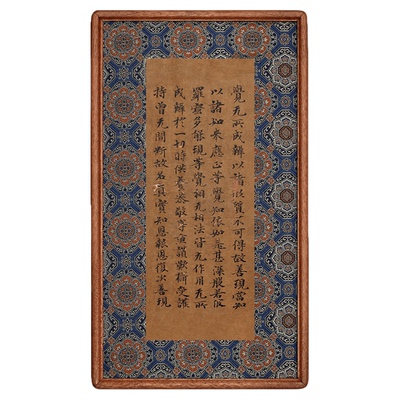 覺无所成辦以皆質不可得故善現當知
以諸如來應正等覺知依如是甚深般若波
羅蜜多能現等覺相无相法皆无作用无所
成辦於一切時供養恭敬尊重讚歎攝受護
持曾无間斷故名真實知恩報恩復次善現